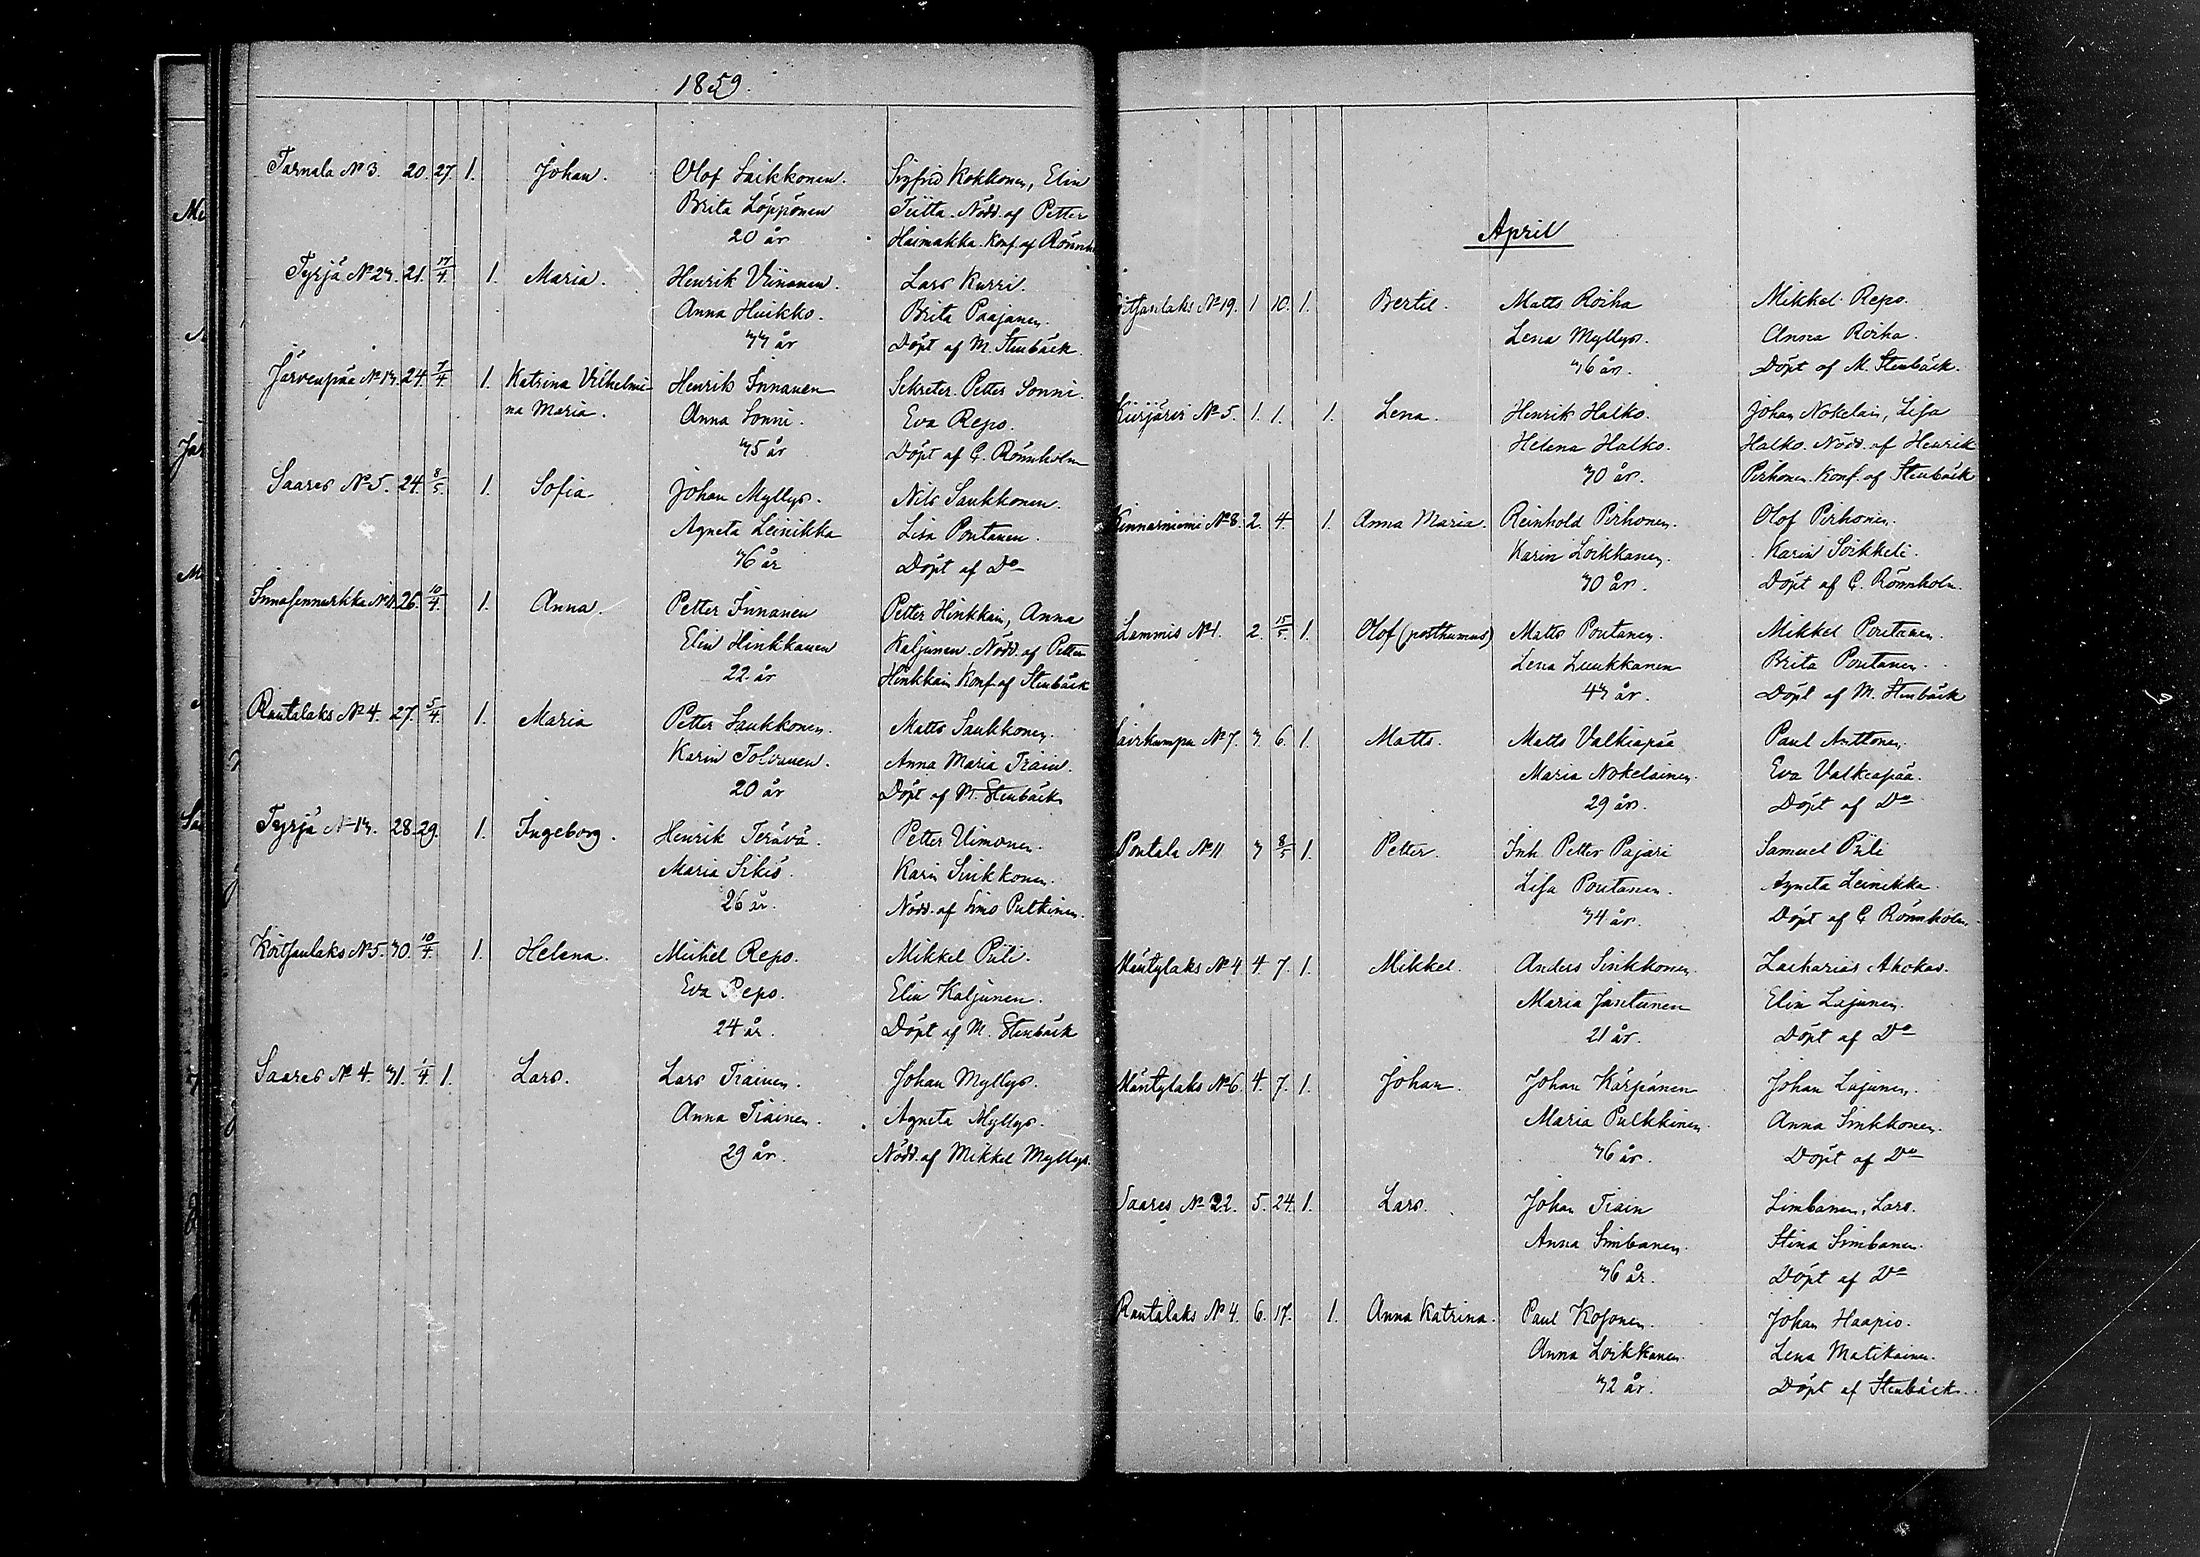 1859.
Tarnala № 3. 20. 27 1. Johan. Olof Saikkonen. Sigfrid Kokkonen, Elin
Brita Löppönen Tiitta. Nödd. af Petter
20 år Haimakka. Konf. af Rönnh
Tyrjä № 23. 21. 17/4 1. Maria. Henrik Viinanen. Lars Kurri.
Anna Huikko. Brita Paajanen.
33 år Döpt af M. Stenbäck.
Järvenpää № 13. 24. 7/4 1. Katrina Vilhelmi- Henrik Innanen Sekreter. Petter Sonni.
na Maria. Anna Sonni. Eva Repo.
35 år Döpt af C. Rönnholm
Saares № 5. 24. 8/5 1. Sofia Johan Myllys. Nils Saukkonen.
Agneta Leinikka Lisa Pontanen.
36 år Döpt af Do
26. 10/4 1. Anna. Petter Innanen Petter Hinkkain, Anna
Elin Hinkkanen Kaljunen. Nödd. af Petter
22 år Hinkkain Konf. af Stenbäck
Rautalaks № 4. 27. 5/4 1. Maria Petter Saukkonen. Matts Saukkonen.
Karin Tolvanen. Anna Maria Train.
20 år Döpt af M. Stenbäck
Tyrjä № 13. 28. 29. 1. Ingeborg. Henrik Terävä. Petter Uimonen.
Maria Sikiö. Karin Sinkkonen.
26 år. Nödd. af Simo Pulkinen.
Koitsanlaks № 5. 30. 10/4 1. Helena. Michel Repo. Mikkel Piili.
Eva Repo. Elin Kaljunen.
24 år. Döpt af M. Stenbäck
Saares № 4. 31. 1/4 1. Lars. Lars Trainen. Johan Myllys.
Anna Trainen. Agneta Myllys.
29 år. Nödd. af Mikkel Myllys.
April
№ 19. 1 10. 1. Bertil. Matts Roiha Mikkel Repo.
Lena Myllys. Anna Roiha.
36 år. Döpt af M. Stenbäck.
Kiirjärvi № 5. 1. 1. 1. Lena. Henrik Halko. Johan Nokelain, Lisa
Helena Halko. Halko. Nödd. af Henrik
30 år. Pirhonen. Konf. af Stenbäck
Kinnarniemi № 8. 2. 4 1. Anna Maria. Reinhold Pirhonen. Olof Pirhonen.
Karin Loikkanen. Karin Soikkeli.
30 år. Döpt af C. Rönnholm.
Lammis № 1. 2. 15/5 1. Olof (posthumus) Matts Pontanen. Mikkel Pontanen.
Lena Luukkanen Brita Pontanen.
43 år. Döpt af M. Stenbäck
№ 7. 3. 6. 1. Matts. Matts Valkiapää Paul Anttonen.
Maria Nokelainen. Eva Valkiapää.
29 år. Döpt af Do
Pontala № 11 3 8/5 1. Petter. Inh. Petter Pajari Samuel Piili
Lisa Pontanen. Agneta Leinikka.
34 år. Döpt af C. Rönnholm.
Mäntylaks № 4 4. 7. 1. Mikkel. Anders Sinkkonen. Zacharias Ahokas.
Maria Jantunen Elin Lajunen.
21 år. Döpt af Do
Mäntylaks № 6 4. 7. 1. Johan. Johan Kärpänen Johan Lajunen.
Maria Pulkkinen. Anna Sinkkonen.
36 år. Döpt af Do
Saares № 22. 5. 24. 1. Lars. Johan Train Simbanen, Lars.
Anna Simbanen. Stina Simbanen.
36 år. Döpt af Do
Rautalaks № 4. 6. 17. 1. Anna Katrina. Paul Kosonen. Johan Haapio.
Anna Loikkanen. Lena Matikainen.
32 år. Döpt af Stenbäck.